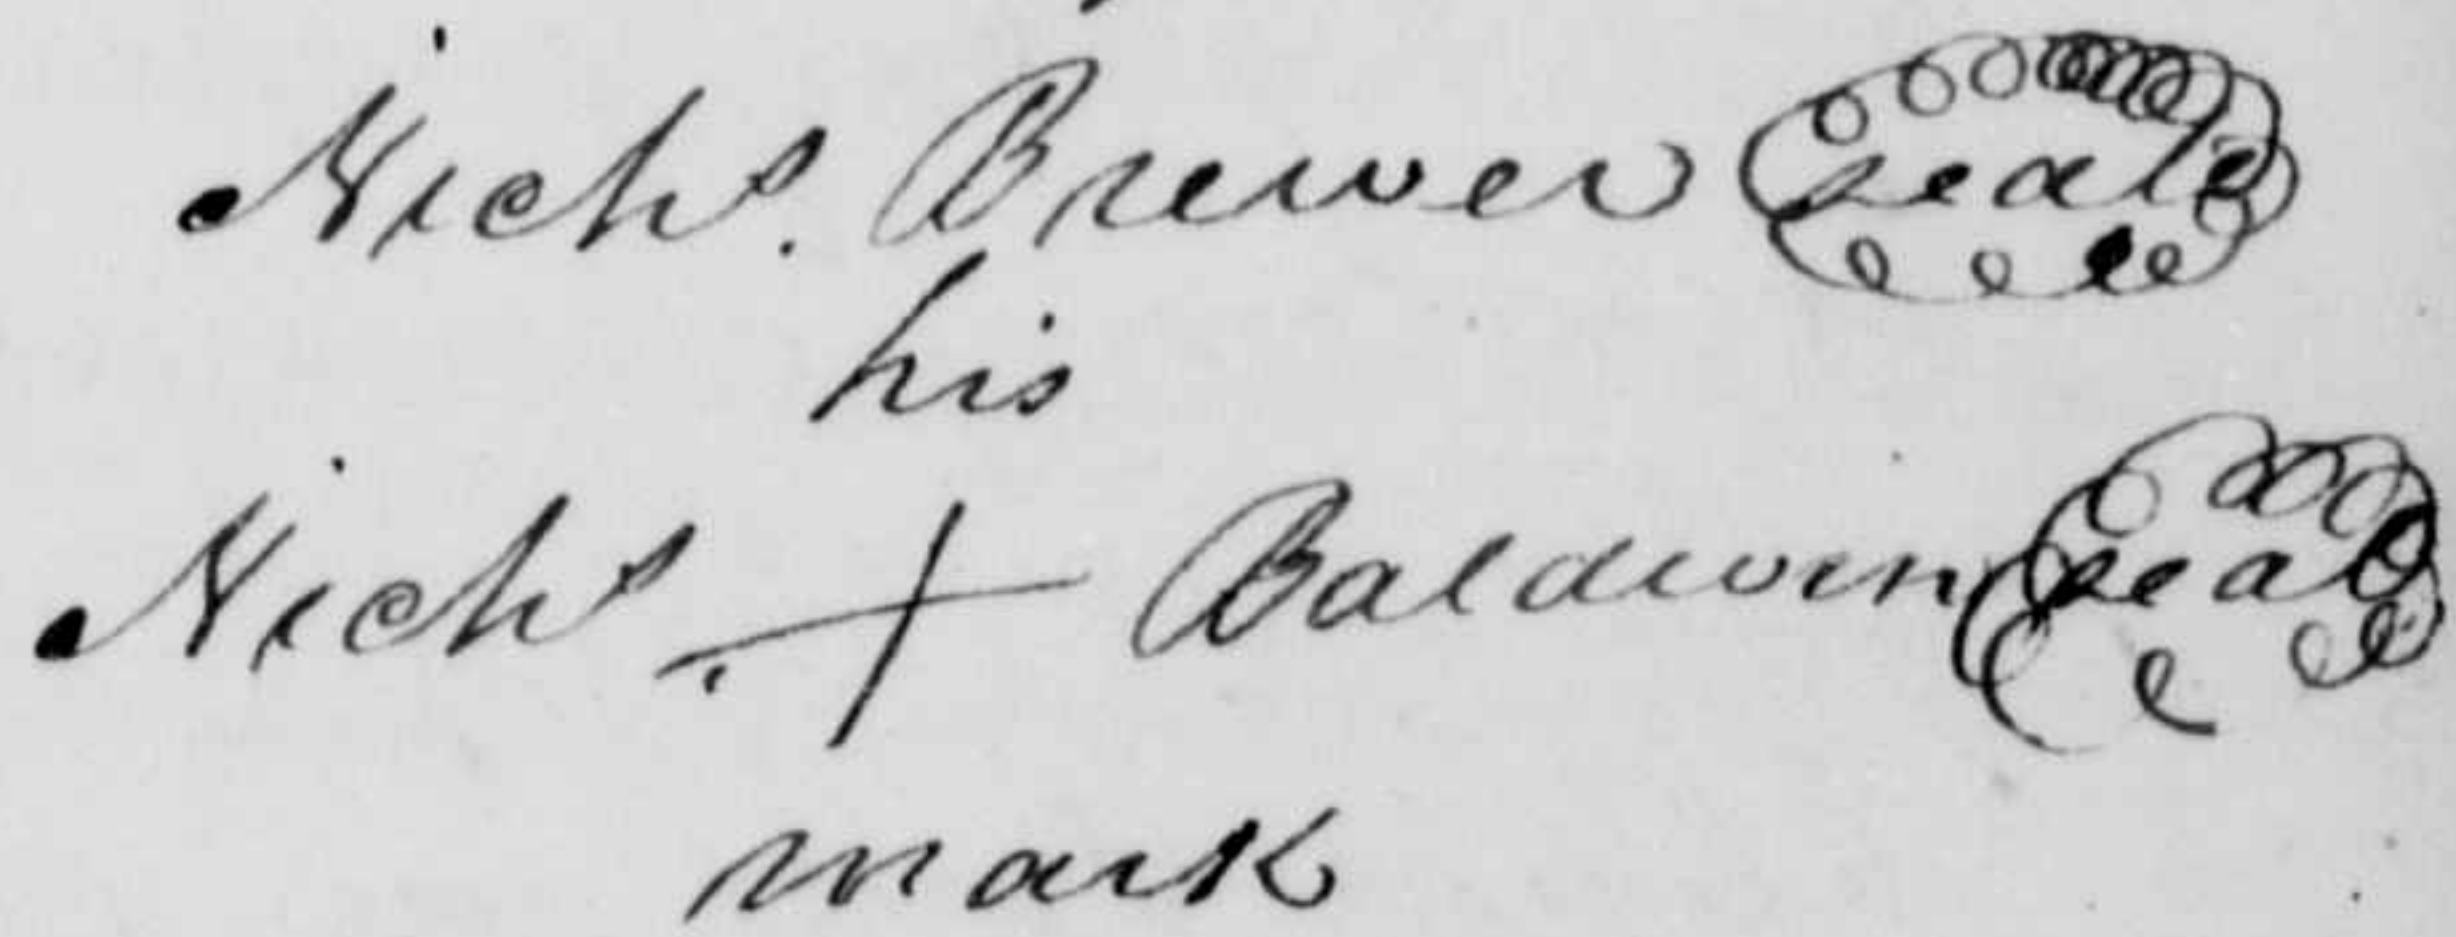 Nichs. Brewer seal
his
Nichs. + Baldwin seal
mark